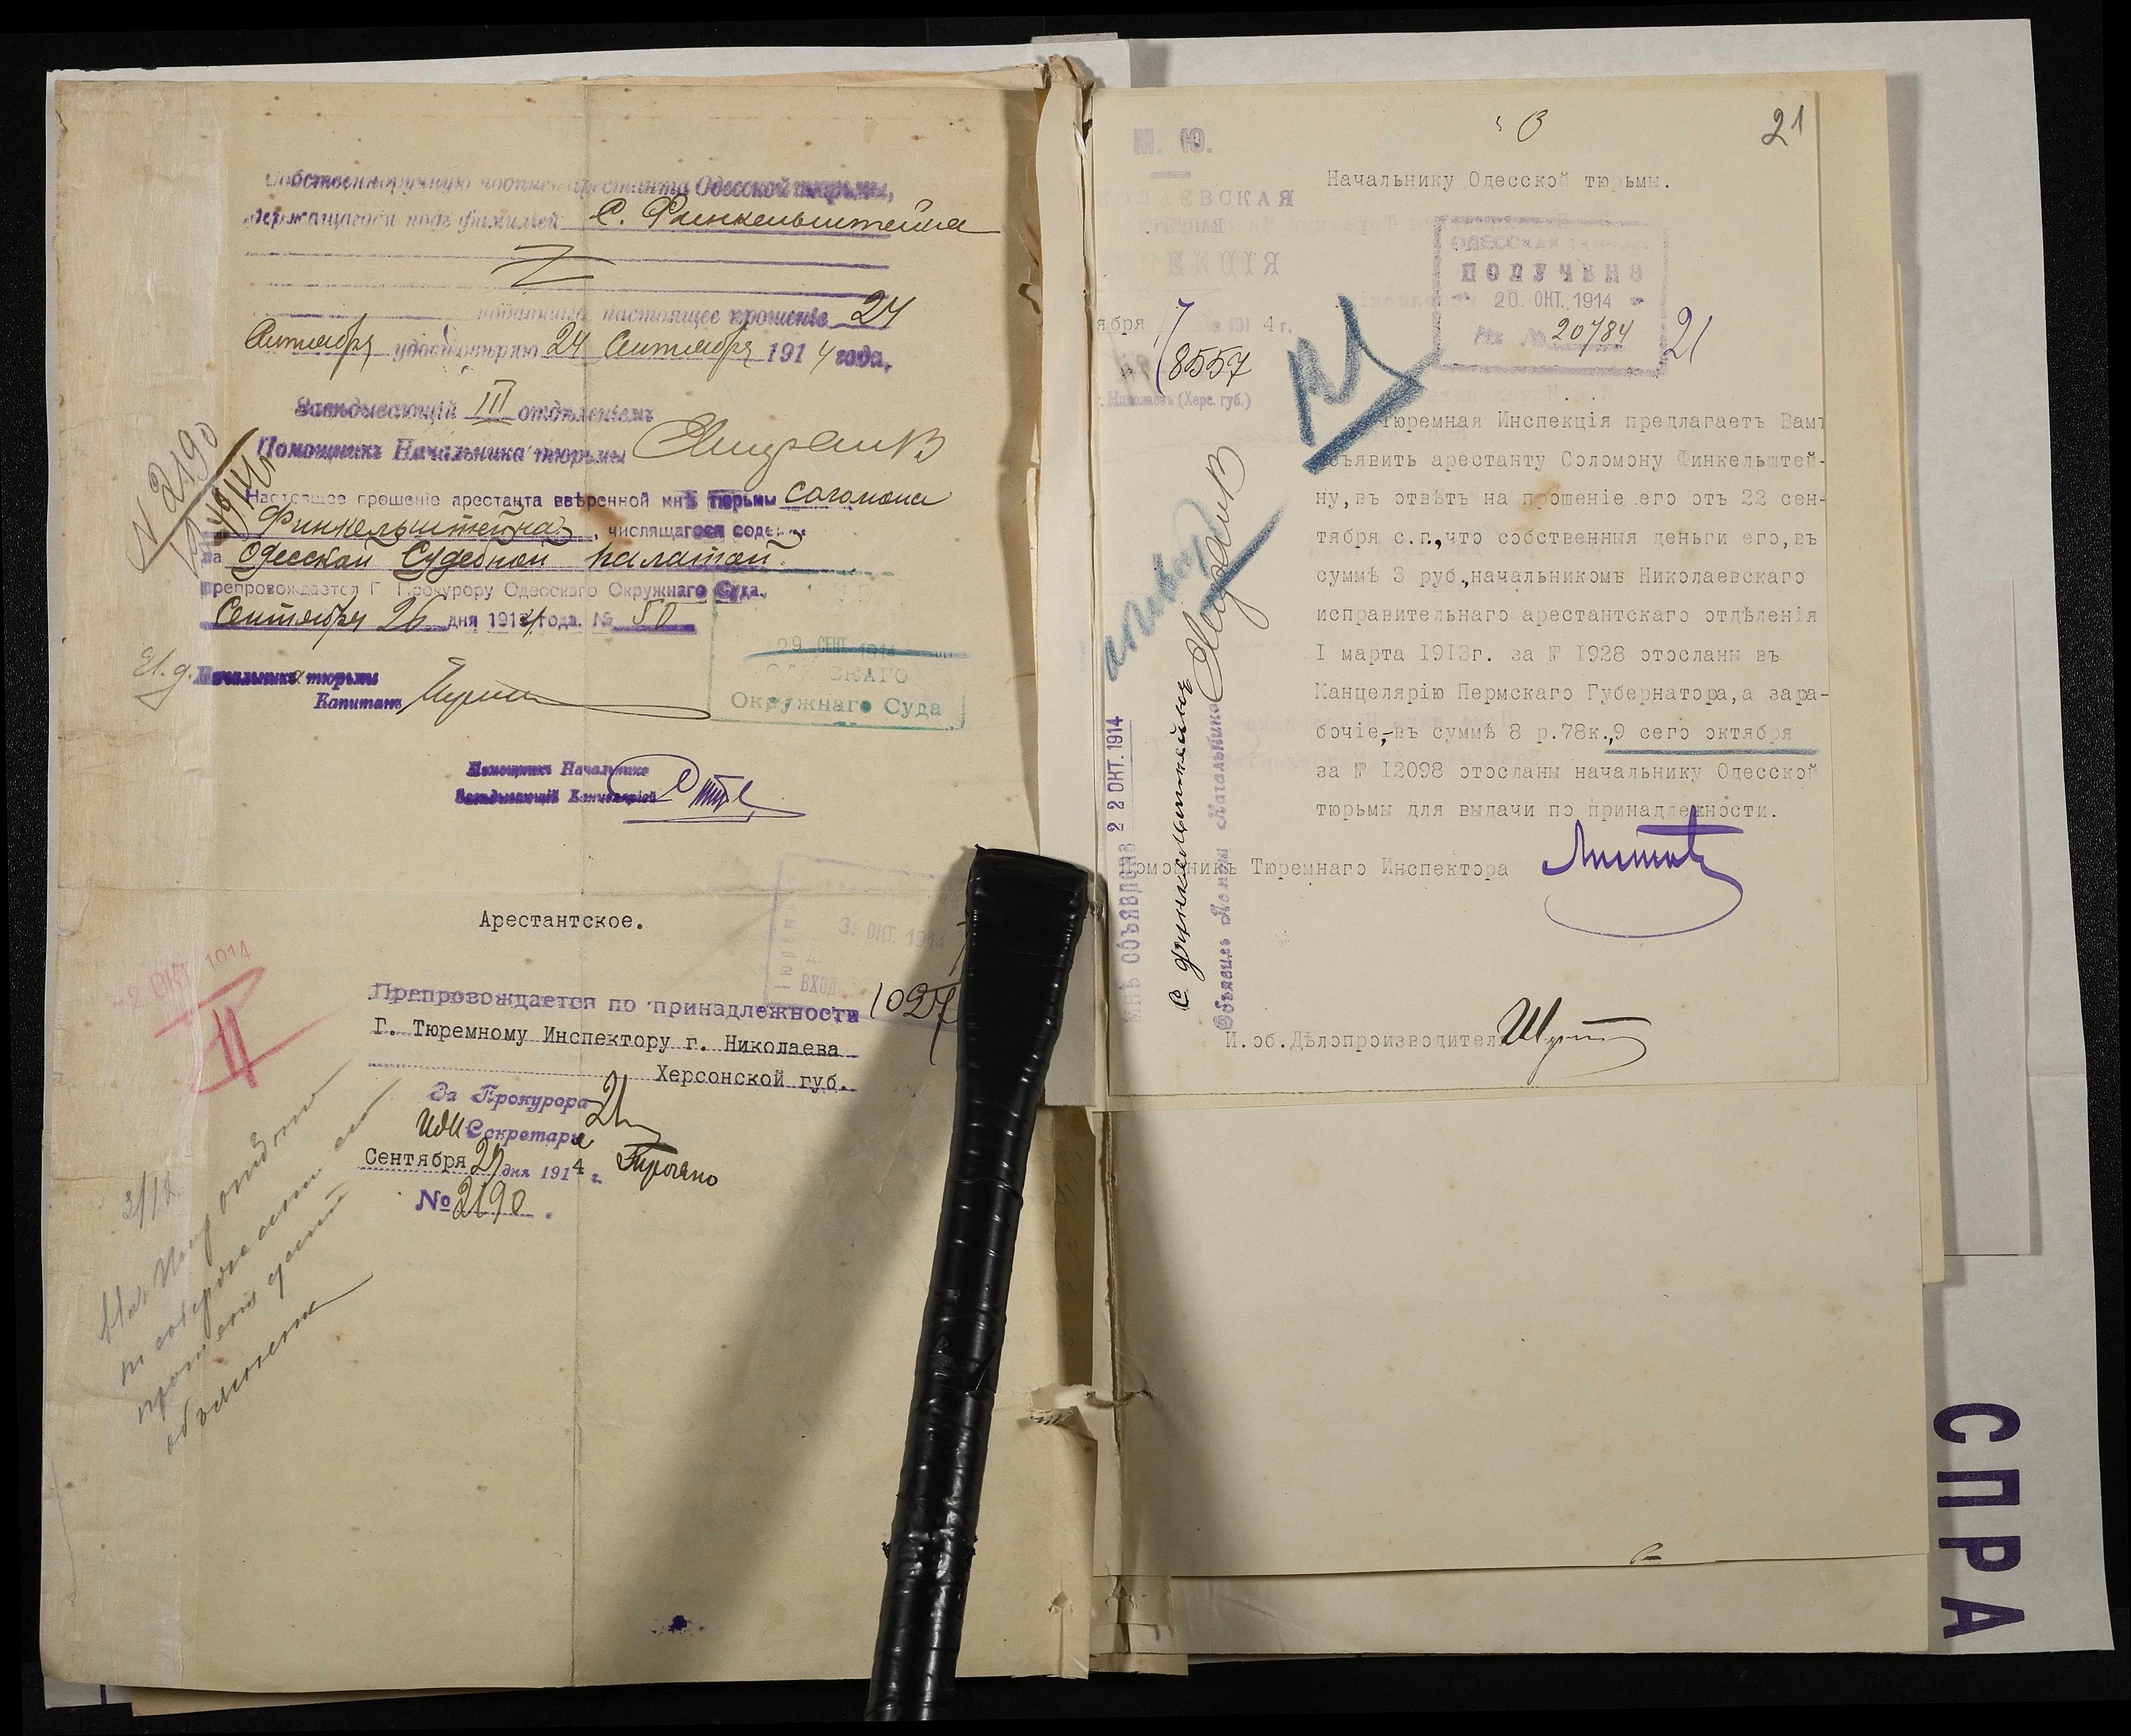 Собственноручную подпись арестанта Одесской тюрьмы,
держащагося подъ фамилiей С. Финкельштейна
подавшаго настоящее прошенiе 24
Сентября удостовѣряю 24 Сентября 1914 года.
Завѣдывающiй III отдѣленiемъ
Помощникъ Начальника тюрьмы
N 2190
Настоящее прошенiе арестанта ввѣренной мнѣ тюрьмы Соломона
Финкельштейна, числящагося содер.
за Одесской Судебной палатой.
препровождается Г. Прокурору Одесскаго Окружнаго Суда.
Сентября 26 дня 1914 года. № 50
29 СЕНТ. 1914
Окружнаго Суда
И. д. Начальника тюрьмы
Капитанъ
Помощникъ Начальника
Завѣдывающiй Канцелярiей
Арестантское.
3. ОКТ. 1914
ВХОД.
-2 ОКТ 1914
II
Препровождается по принадлежности
Г. Тюремному Инспектору г. Николаева
Херсонской губ.
За Прокурора
Секретаря
Сентября 29 дня 1914 г.
№ 2190.
3/12.
21
М. Ю.
Начальнику Одесской тюрьмы.
КОЛАЕВСКАЯ
ЕКЦIЯ
ОДЕССКАЯ ТЮРЬМА
ПОЛУЧЕНО
20. ОКТ. 1914
Вх № 20784
21
ября 1914 г.
18557
г. Николаевъ (Херс. губ.)
Тюремная Инспекцiя предлагаетъ Вамъ
объявить арестанту Соломону Финкельштей-
ну, въ отвѣтъ на прошенiе его отъ 22 сен-
тября с.г., что собственныя деньги его, въ
суммѣ 3 руб., начальникомъ Николаевскаго
исправительнаго арестантскаго отдѣленiя
I марта 1913г. за № 1928 отосланы въ
Канцелярiю Пермскаго Губернатора, а зара-
бочiе,-въ суммѣ 8 р.78к., 9 сего октября
за № 12098 отосланы начальнику Одесской
тюрьмы для выдачи по принадлежности.
Помощникъ Тюремнаго Инспектора
И. об. Дѣлопроизводителя
Мнѣ объявлено 22 ОКТ. 1914
С Финкельштейнъ
Объявилъ Помощ. Начальника
СПРА